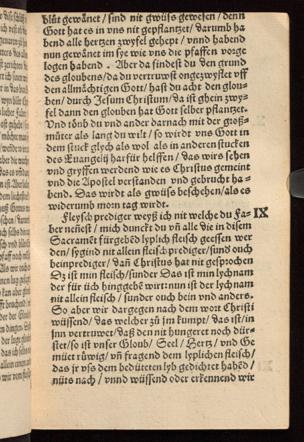 blůt gewånet / sind nit gwüss gewesen / denn
Gott hat es in vns nit gepflantzet / darumb ha
bend alle hertzen zwyfel gehept / vnnd habend
nun gewånet im sye wie vns die pfaffen vorge
logen habend . Aber da findest du den grund
des gloubens / da du vertruwst ongezwyflet vff
den allmåchtigen Gott / hast du acht den glou-
ben / durch Jesum Christum / da ist ghein zwy-
fel dann den glouben hat Gott selber pflantzet.
Vnd tôub du vnd ander darnach mit der groß-
můter als lang du wilt / so wirdt vns Gott in
dem stuck glych als wol als in anderen stucken
des Euangelij harfür helffen / das wirs sehen
vnd gryffen werdend wie es Christus gemeint
vnd die Apostel verstanden vnd gebrucht ha-
bend. Das wirdt als gwüss beschehen / als es
widerumb morn tag wirdt.
Fleysch prediger weyß ich nit welche du Fa- IX
ber nenest / mich dunckt du vñ alle die in disem
Sacramēt fürgebēd lyplich fleisch geessen wer
den / sygind nit allein fleisch prediger / sund ouch
beinprediger / dañ Christus hat nit gesprochen
Dz ist min fleisch / sunder Das ist min lychnam
der für üch hinggebē wirt: nun ist der lychnam
nit allein fleisch / sunder ouch bein vnd anders.
So aber wir dargegen nach dem wort Christi
wüssend / das welcher zů jm kumpt / das ist / in
jnn vertruwet / daß den nit hungeret noch dür-
stet / so ist vnser Gloub / Seel / Hertz / vnd Ge
müet růwig / vñ fragend dem lyplichen fleisch /
das jr vss dem bedütteten lyb gedichtet habēd /
nüts nach / vnnd wüssend oder erkennend wir